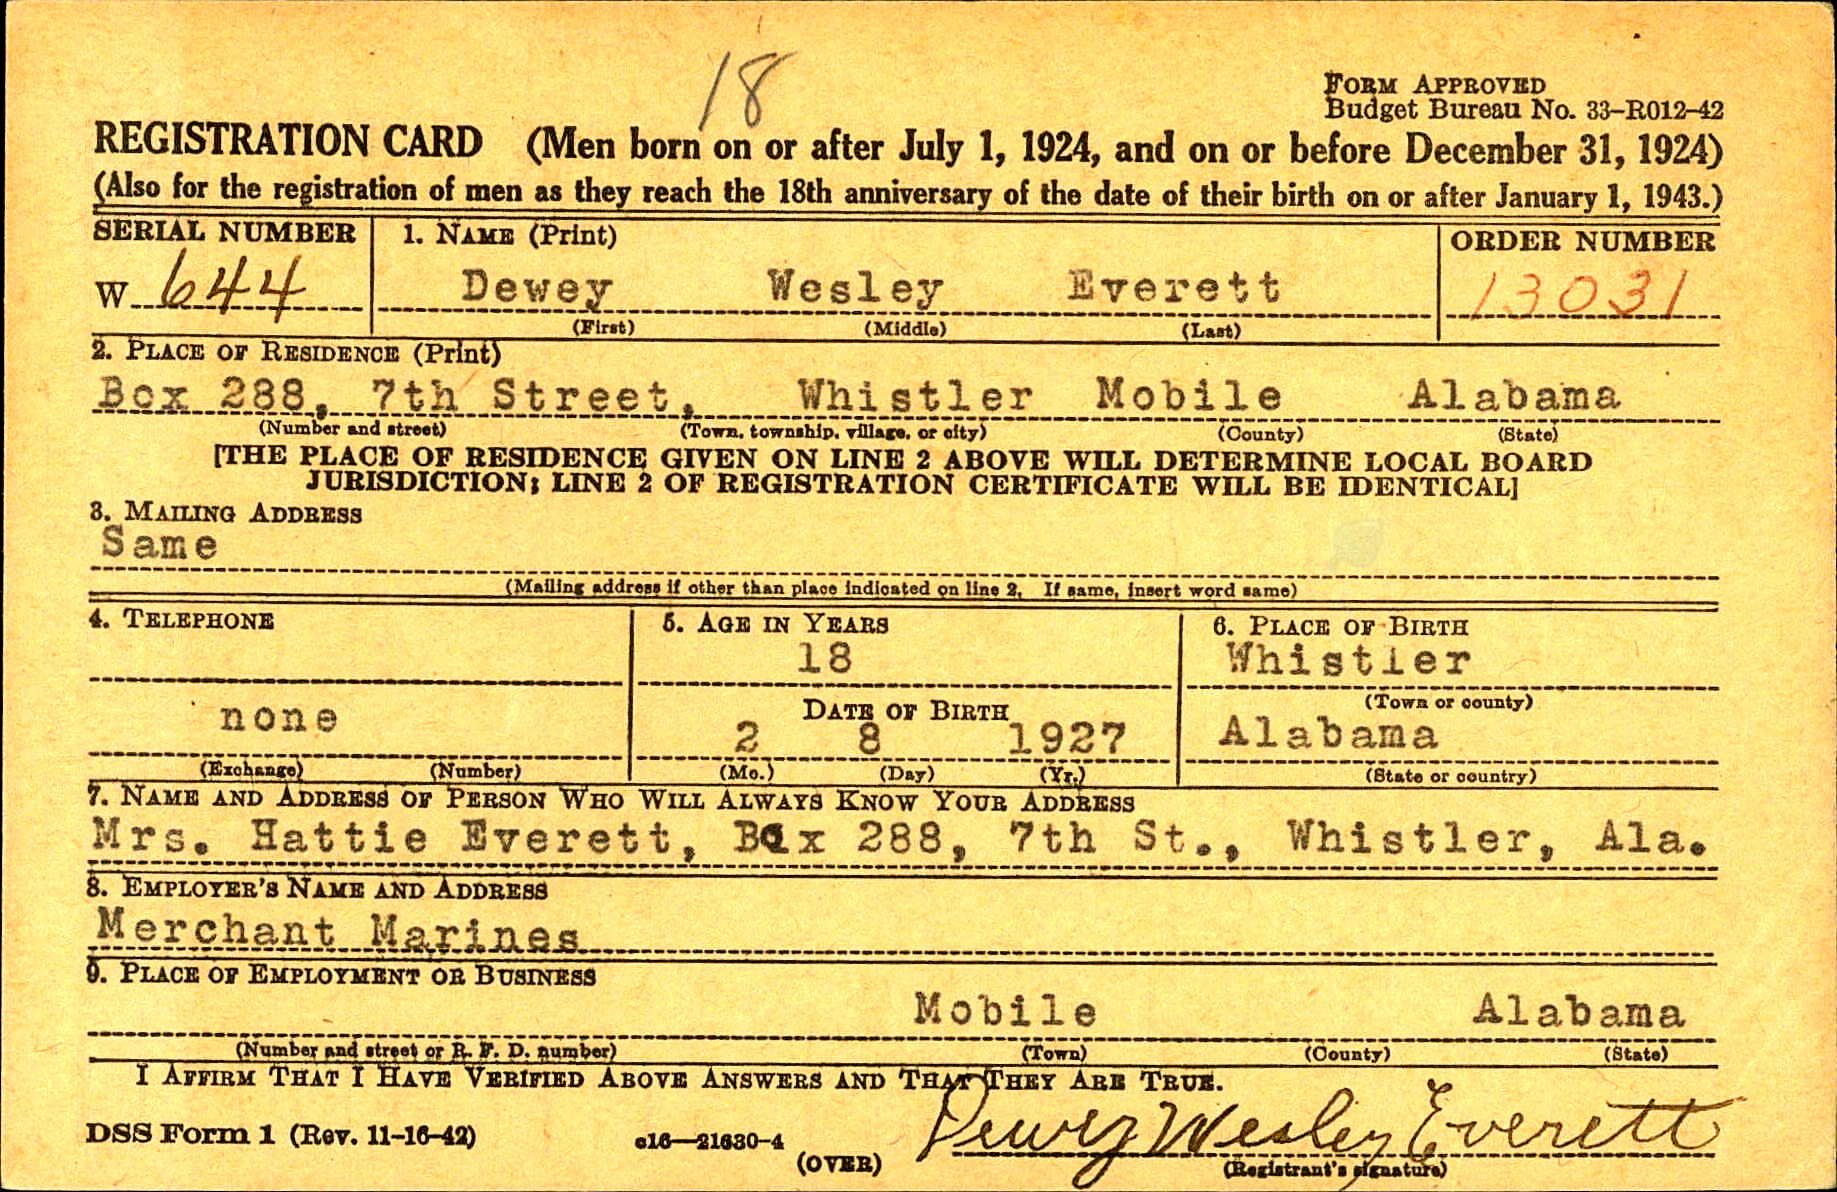 18
FORM APPROVED
Budget Bureau No. 33–R012–42
REGISTRATION CARD (Men born on or after July 1, 1924, and on or before December 31, 1924)
(Also for the registration of men as they reach the 18th anniversary of the date of their birth on or after January 1, 1943.)
SERIAL NUMBER 1. NAME (Print) ORDER NUMBER
W 644 Dewey Wesley Everett 13031
(First) (Middle) (Last)
2. PLACE OF RESIDENCE (Print)
Box 288, 7th Street, Whistler Mobile Alabama
(Number and street) (Town, township, village, or city) (County) (State)
[THE PLACE OF RESIDENCE GIVEN ON LINE 2 ABOVE WILL DETERMINE LOCAL BOARD
JURISDICTION; LINE 2 OF REGISTRATION CERTIFICATE WILL BE IDENTICAL]
3. MAILING ADDRESS
Same
(Mailing address if other than place indicated on line 2. If same, insert word same)
4. TELEPHONE 5. AGE IN YEARS 6. PLACE OF BIRTH
18 Whistler
DATE OF BIRTH (Town or county)
none 2 8 1927 Alabama
(Exchange) (Number) (Mo.) (Day) (Yr.) (State or country)
7. NAME AND ADDRESS OF PERSON WHO WILL ALWAYS KNOW YOUR ADDRESS
Mrs. Hattie Everett, Box 288, 7th St., Whistler, Ala.
8. EMPLOYER'S NAME AND ADDRESS
Merchant Marines
9. PLACE OF EMPLOYMENT OR BUSINESS
Mobile Alabama
(Number and street or R. F. D. number) (Town) (County) (State)
I AFFIRM THAT I HAVE VERIFIED ABOVE ANSWERS AND THAT THEY ARE TRUE.
DSS Form 1 (Rev. 11–16–42) c16—21630-4 Dewey Wesley Everett
(OVER) (Registrant's signature)